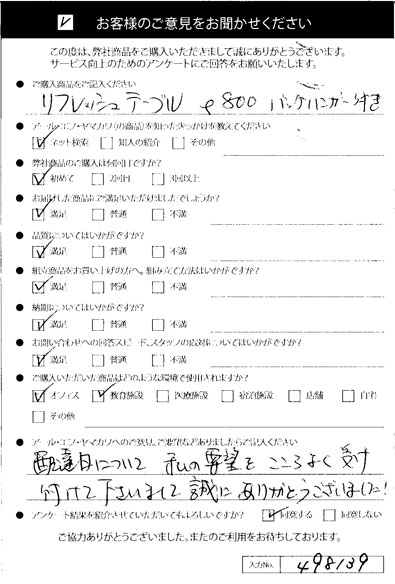 お客様のご意見をお聞かせください
この度は、弊社商品をご購入いただきまして誠にありがとうございます。
サービス向上のためのアンケートにご回答をお願いいたします。
● ご購入商品をご記入ください
リフレッシュテーブル φ800 バックハンガー付き
● アール・エフ・ヤマカワ(の商品)を知ったきっかけを教えてください
ネット検索 知人の紹介 その他
● 弊社商品のご購入は何回目ですか?
初めて 2回目 3回以上
● お届けした商品にご満足いただけましたでしょうか?
満足 普通 不満
● 品質についてはいかがですか?
満足 普通 不満
● 組立商品をお買い上げの方へ。組み立て方法はいかがですか?
満足 普通 不満
● 納期についてはいかがですか?
満足 普通 不満
● お問い合わせへの回答スピード、スタッフの応対についてはいかがですか?
満足 普通 不満
● ご購入いただいた商品はどのような環境で使用されますか?
オフィス 教育施設 医療施設 宿泊施設 店舗 自宅
その他
● アール・エフ・ヤマカワへのご意見、ご要望などありましたらご記入ください
配達日について 私の要望を こころよく受け
付けて下さいまして 誠に ありがとうございました!
● アンケート結果を紹介させていただいてもよろしいですか? 同意する 同意しない
ご協力ありがとうございました。またのご利用をお待ちしております。
入力No. 498139